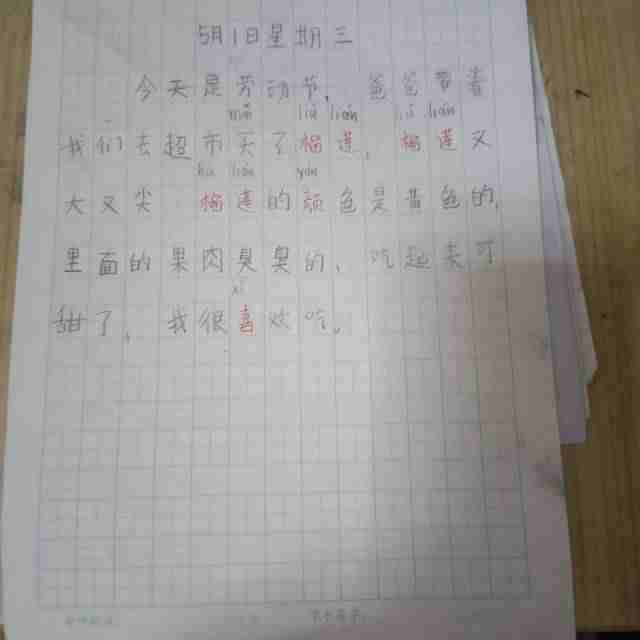 5月1日星期三
今天是劳动节，爸爸带着
mǎi liú lián liú lián
我们去超市买了榴莲，榴莲又
liú lián yán
大又尖 榴莲的颜色是黄色的，
里面的果肉臭臭的、吃起来可
xǐ
甜了，我很喜欢吃。